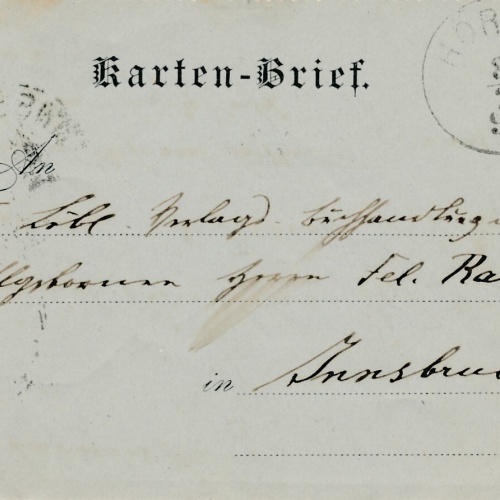 Karten-Brief.
HOR
An
Löbl Verlags-Buchhandlung
lgebornen Herrn Fel. Ra
in Innsbruc